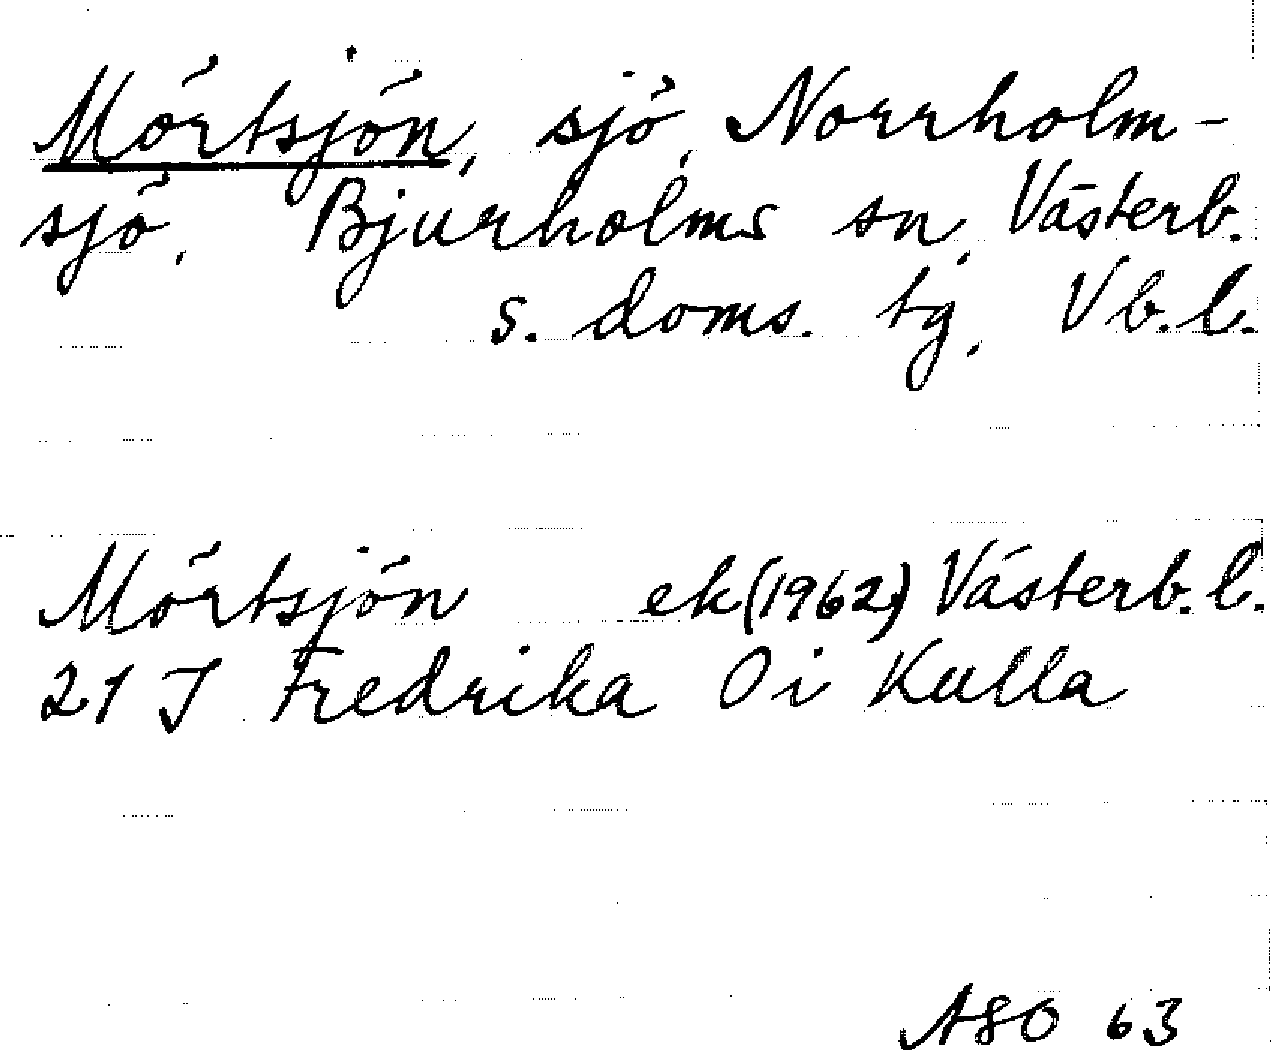 Mörtsjön, sjö, Norrholm-
sjö, Bjurholms sn, Västerb.
s. doms. tg, Vb.l.
Mörtsjön ek(1962) Västerb.l.
21 J Fredrika 0 i Kulla
ASO 63